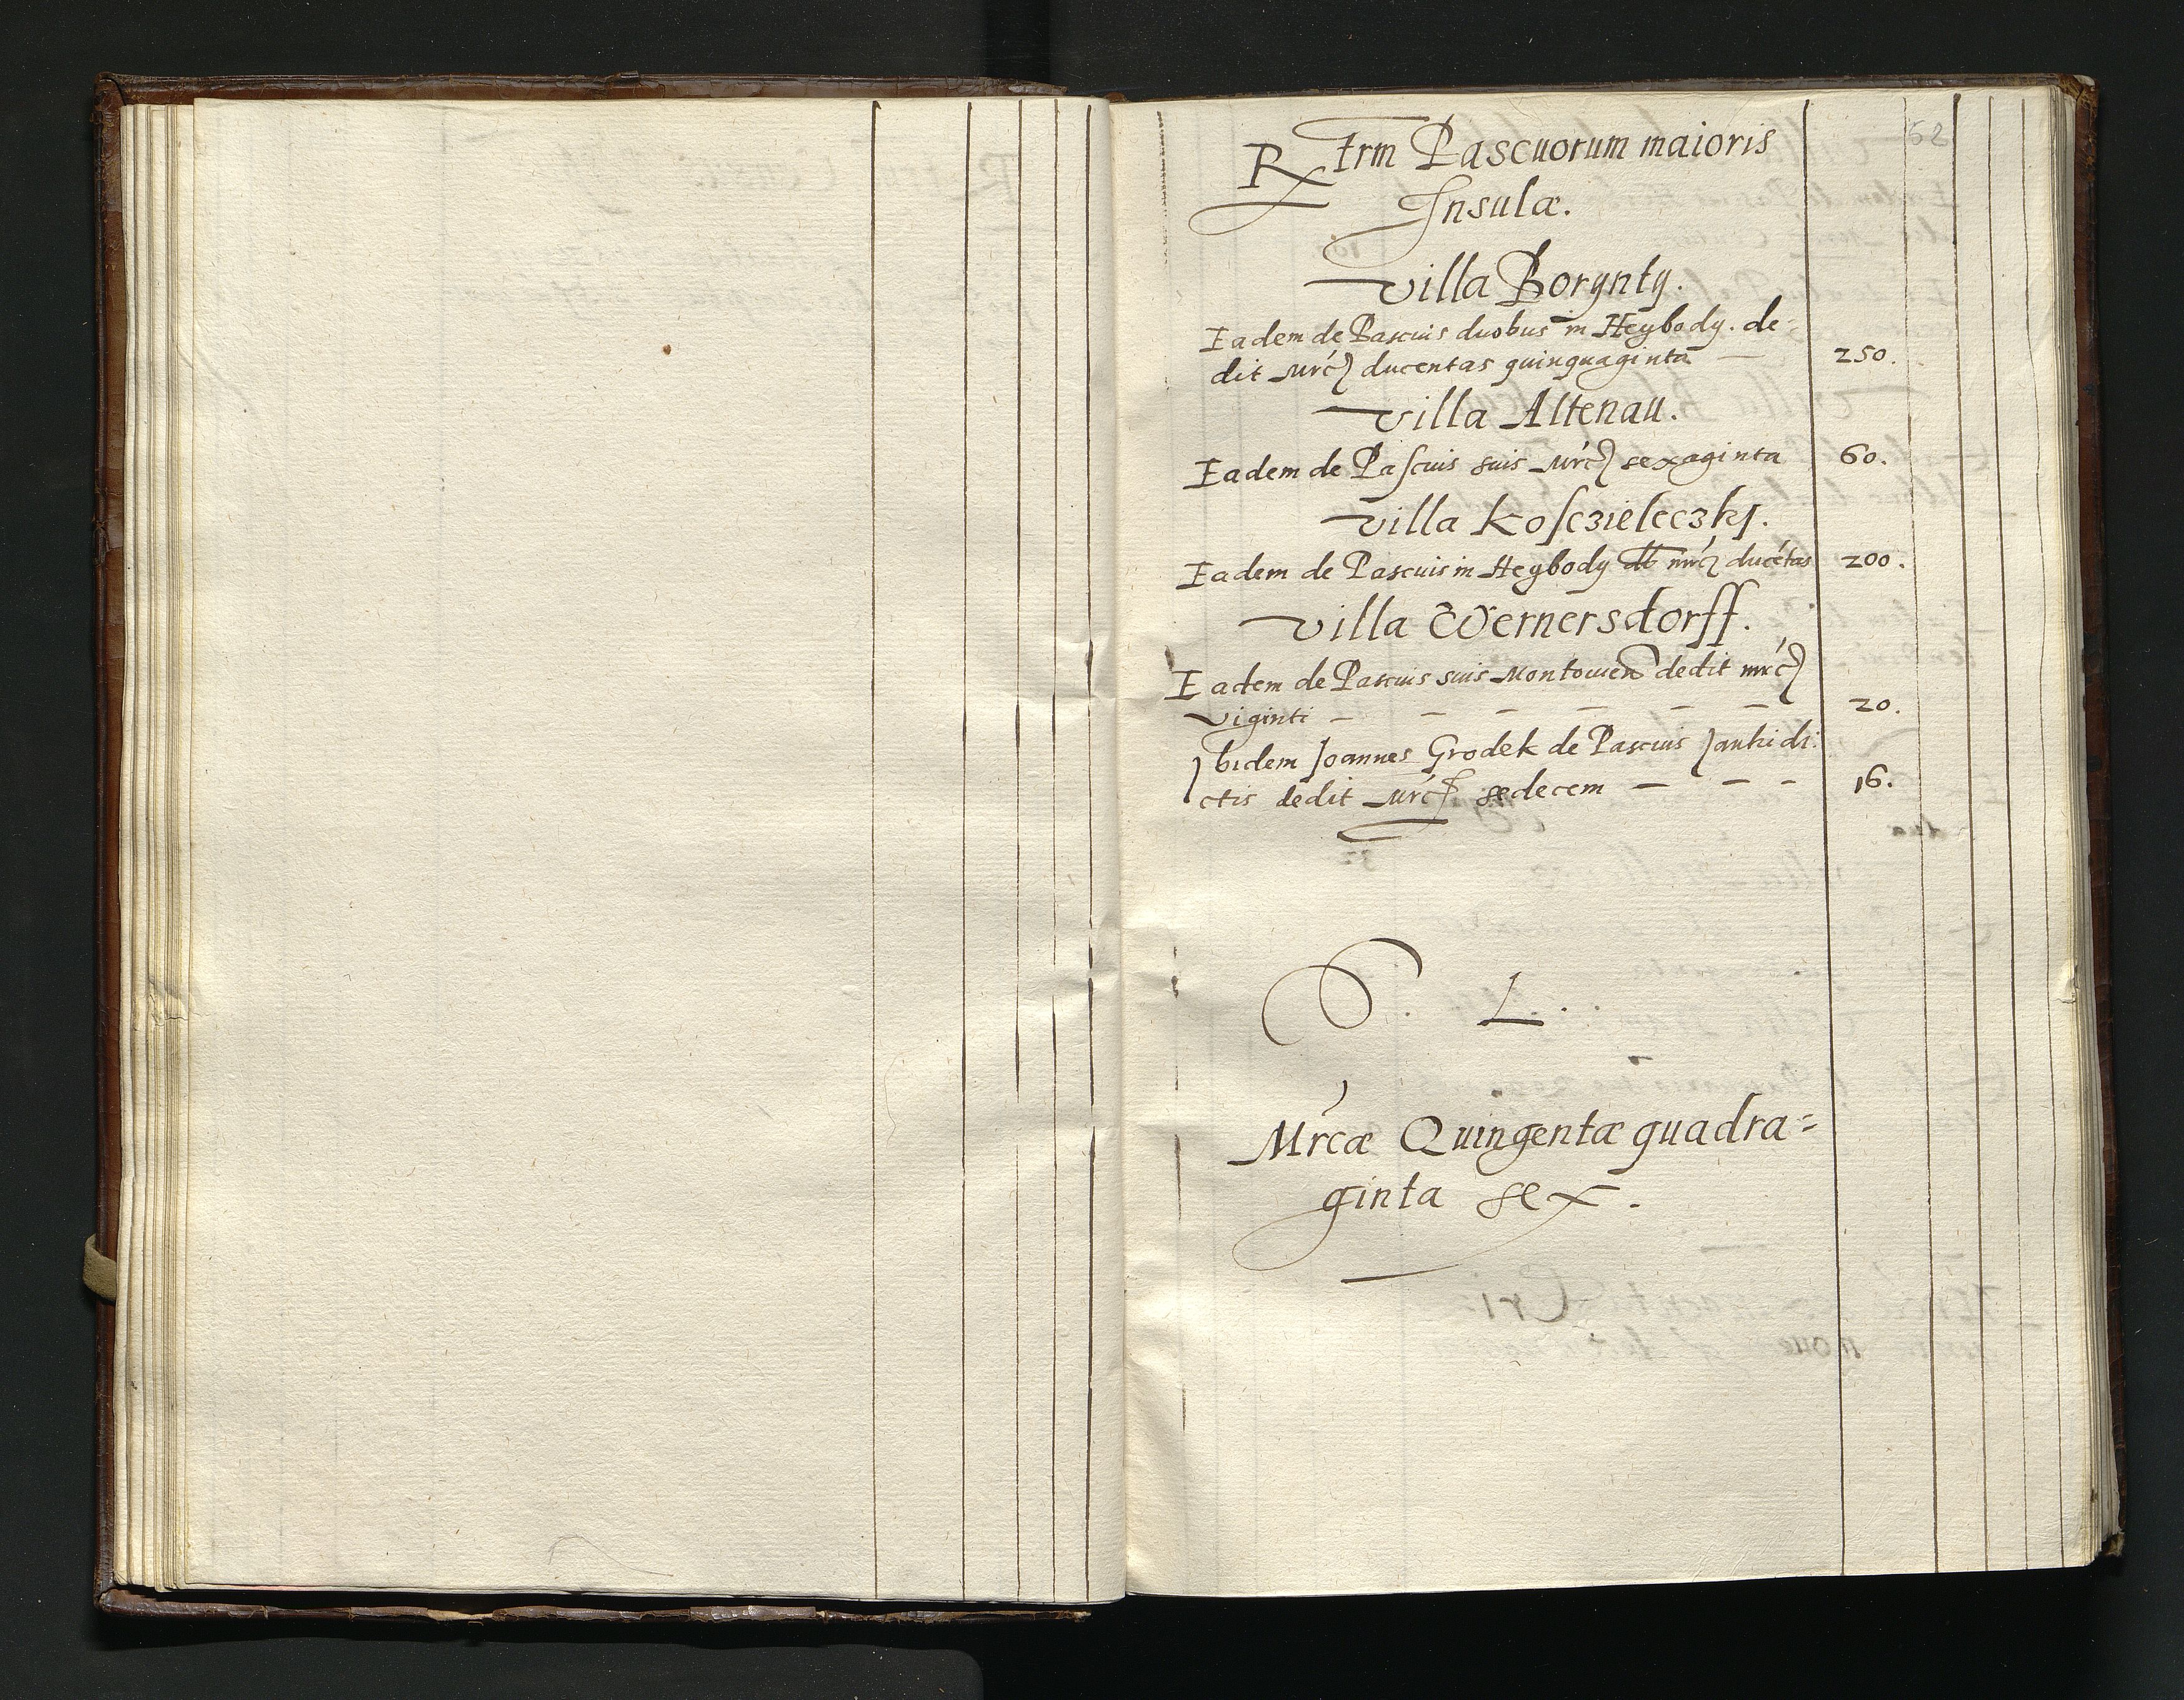 62
Rx trm Pascuorum maioris
Insulæ.
Villa Borynty.
Eadem de Pascuis duobus in Heybody. de-
dit Mrc ducentas quinquaginta — 250.
Villa Altenau.
Eadem de Pascuis suis Mrc sexaginta 60.
Villa Kosczieleczky.
Eadem de Pascuis in Heybody dt mrc ducetas 200.
Villa Wernersdorff.
Eadem de Pascuis suis Montowen dedit mrc
Viginti — — — — — — 20.
Ibidem Joannes Grodek de Pascuis Janki di:
ctis dedit Mrc sedecem — — — 16.
L.
Mrcæ Quingentæ quadra=
ginta sex.